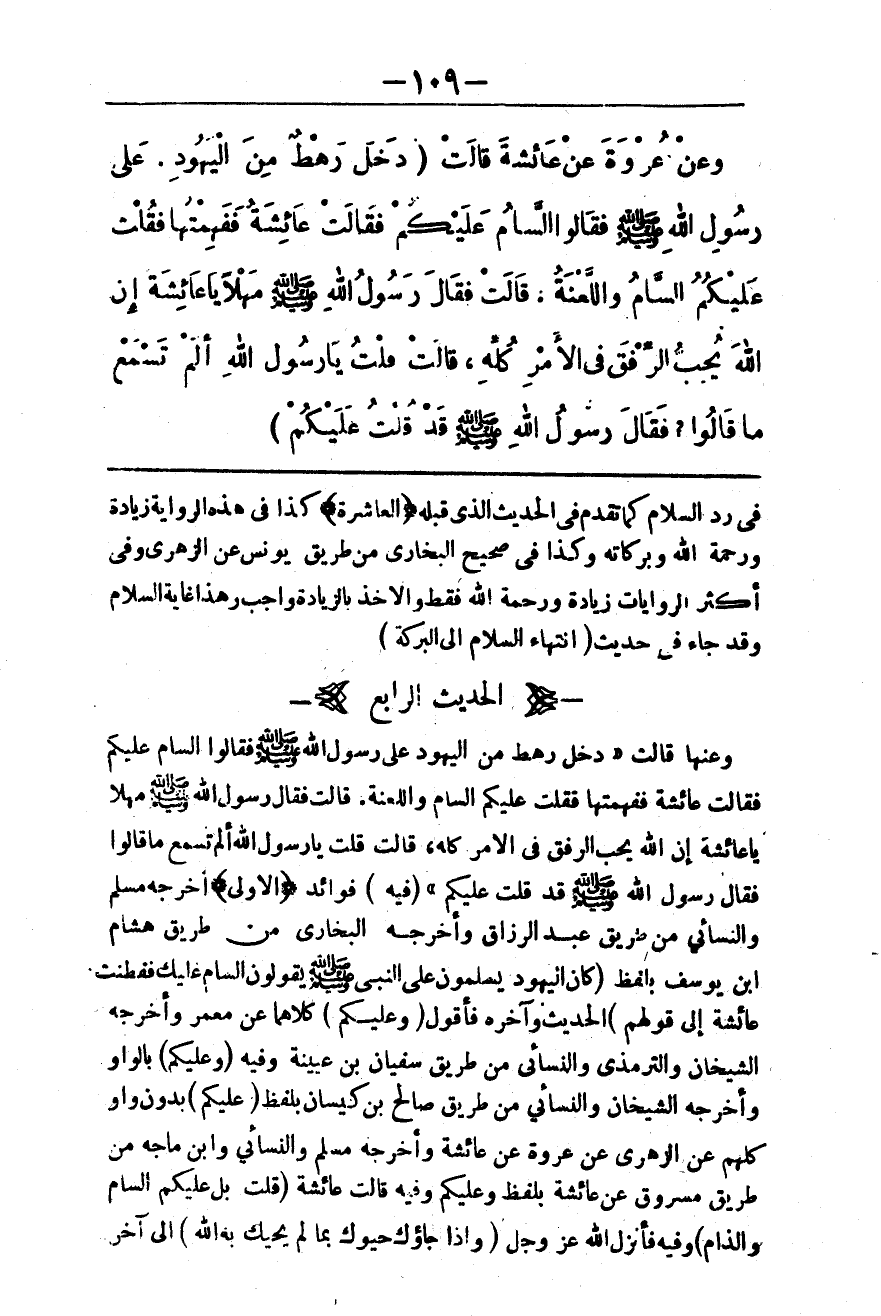 -١٠٩-
وعنْ عُرْوَةَ عنْ عَائشةَ قالَتْ ( دخَلَ رَهْطٌ مِنَ الْيَهُودِ . عَلى
رسُولِ اللهِ ﷺ فقَالوا السَّامُ عَلَيْكُمْ فقَالَتْ عائِشَةُ فَفَهِمْتُها فقُلْت
عَلَيْكُمُ السَّامُ واللَّعْنَةُ ، قَالَتْ فقَالَ رَسُولُ اللهِ ﷺ مَهْلاً يا عَائِشَةَ إن
اللهَ يُحِبُّ الرِّفْقَ فى الأَمْرِ كُلِّهِ ، قالَتْ قلْتُ يَارسُول اللهِ ألَمْ تَسْمَعْ
ما قَالُوا ؟ فَقَالَ رسُولُ اللهِ ﷺ قَدْ قُلْتُ عَلَيْكُمْ )
فى رد السلام كما تقدم فى الحديث الذى قبله ﴿العاشرة﴾ كذا فى هذه الرواية زيادة
ورحمة الله وبركاته وكذا فى صحيح البخارى من طريق يونس عن الزهرى وفى
أكثر الروايات زيادة ورحمة الله فقط والاخذ بالزيادة واجب وهذا غاية السلام
وقد جاء فى حديث ( انتهاء السلام الى البركة )
- ﴿ الحديث الرابع ﴾ -
وعنها قالت « دخل رهط من اليهود على رسول الله ﷺ فقالوا السام عليكم
فقالت عائشة ففهمتها فقلت عليكم السام واللعنة . قالت فقال رسول الله ﷺ مهلا
ياعائشة إن الله يحب الرفق فى الامر كله ، قالت قلت يارسول الله ألم تسمع ماقالوا
فقال رسول الله ﷺ قد قلت عليكم » (فيه ) فوائد ﴿الاولى﴾ أخرجه مسلم
والنسائي من طريق عبد الرزاق وأخرجه البخارى من طريق هشام
ابن يوسف بلفظ (كان اليهود يسلمون على النبى ﷺ يقولون السام عليك ففطنت
عائشة إلى قولهم )الحديث وآخره فأقول ( وعليكم ) كلاهما عن معمر وأخرجه
الشيخان والترمذى والنسائى من طريق سفيان بن عيينة وفيه (وعليكم) بالواو
وأخرجه الشيخان والنسائي من طريق صالح بن كيسان بلفظ ( عليكم ) بدون واو
كلهم عن الزهرى عن عروة عن عائشة وأخرجه مسلم والنسائي وابن ماجه من
طريق مسروق عن عائشة بلفظ وعليكم وفيه قالت عائشة (قلت بل عليكم السام
والذام) وفيه فأنزل الله عز وجل ( واذا جاؤك حيوك بما لم يحيك به الله ) الى آخر